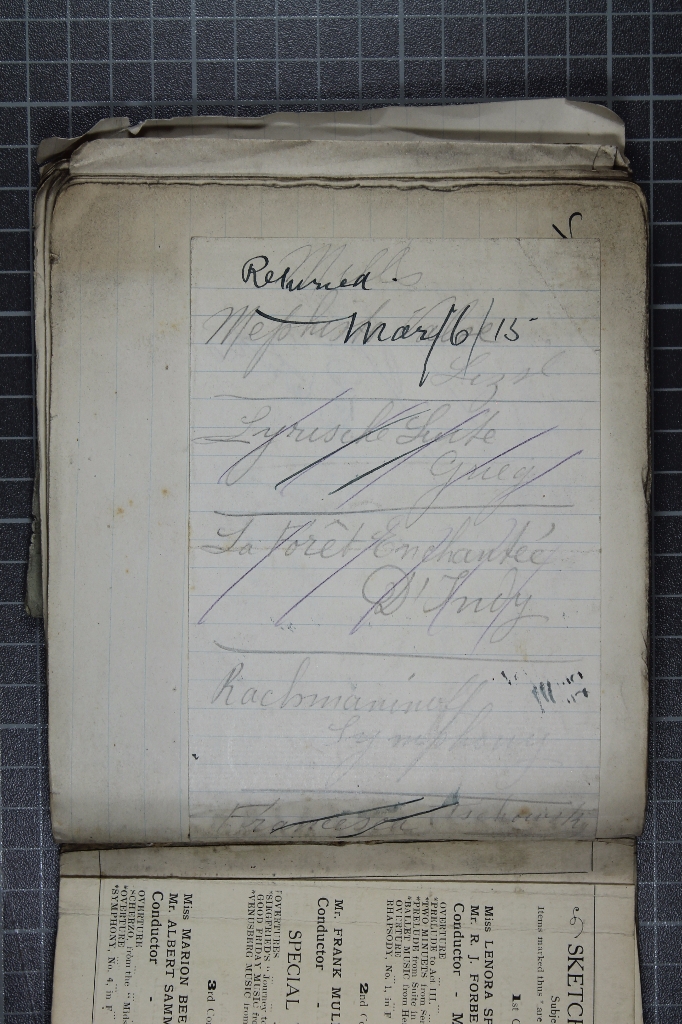 Returned.
Mephisto
Mar/16/15
Liszt
Lyrische Suite
Grieg
La Forêt Enchantée
D'Indy
Rachmaninoff
Symphony
Francesca Tschaikowsky
SKETCH
Items marked thus * are
1st Co
Miss LENORA SP
Mr. R. J. FORBE
Conductor - M
OVERTURE
*PRELUDE to Act III.
*TWO MINUETS from Ser
*PRELUDE from Suite in
*BALLET MUSIC from He
OVERTURE
RHAPSODY, No. 1, in F
2nd C
Mr. FRANK MUL
Conductor -
SPECIAL
OVERTURES
*SIEGFRIED'S "Journey to
GOOD FRIDAY MUSIC fr
*VENUSBERG MUSIC from
3rd Co
Miss MARION BEE
Mr. ALBERT SAMM
Conductor -
OVERTURE
SCHERZO, from the "Mid
*OVERTURE
*SYMPHONY, No. 4, in F